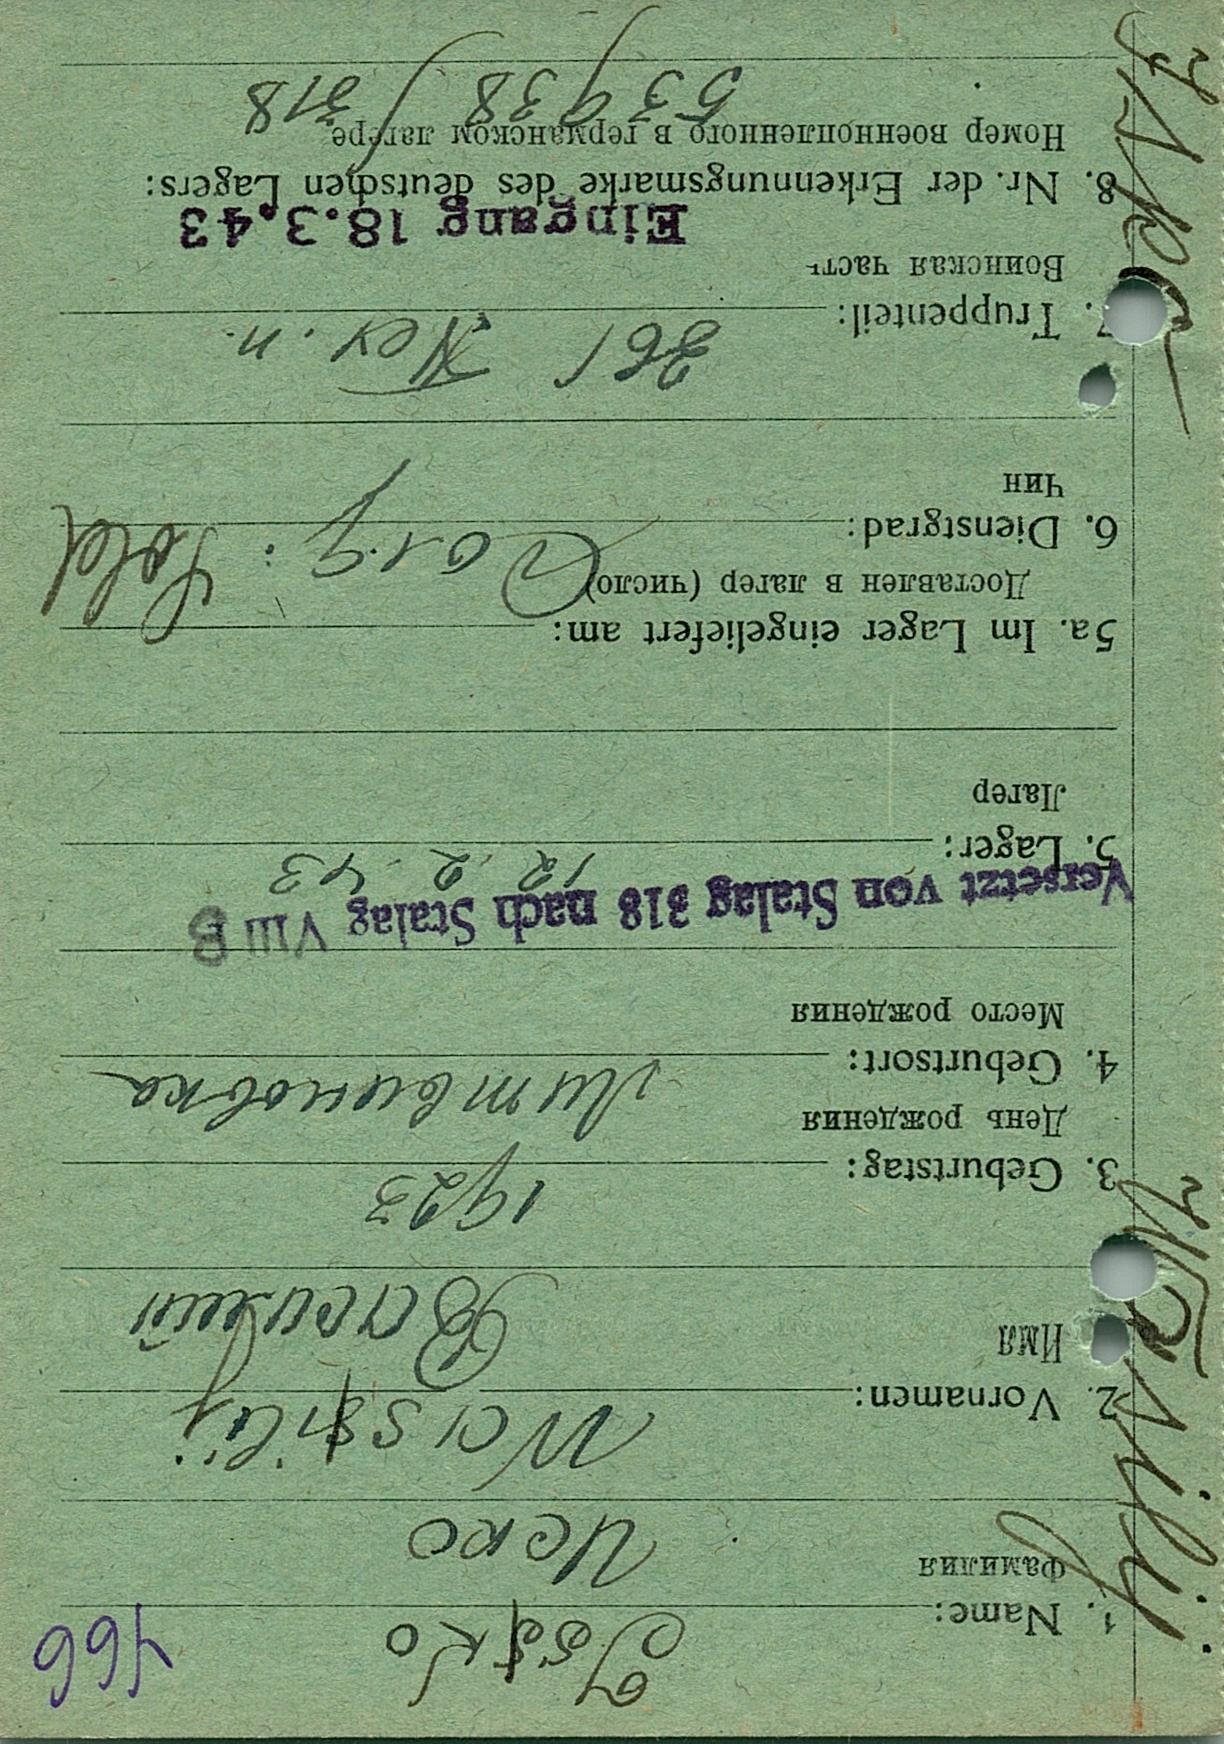 466
Issko
1. Name:
Фамилия
Иско
Wassilij
2. Vornamen:
Имя
Василий
1923
3. Geburtstag:
День рождения
Литвиновка
4. Geburtsort:
Место рождения
Versetzt von Stalag 318 nach Stalag VIII B
12. 2. 43
5. Lager:
Лагер
5a. Im Lager eingeliefert am:
Доставлен в лагер (число)
Sold
6. Dienstgrad:
Чин
361
7. Truppenteil:
Воинская часть
Eingang 18.3.43
8. Nr. der Erkennungsmarke des deutschen Lagers:
Номер военнопленного в германском лагере
53938 / 318
Isko
Wasilij